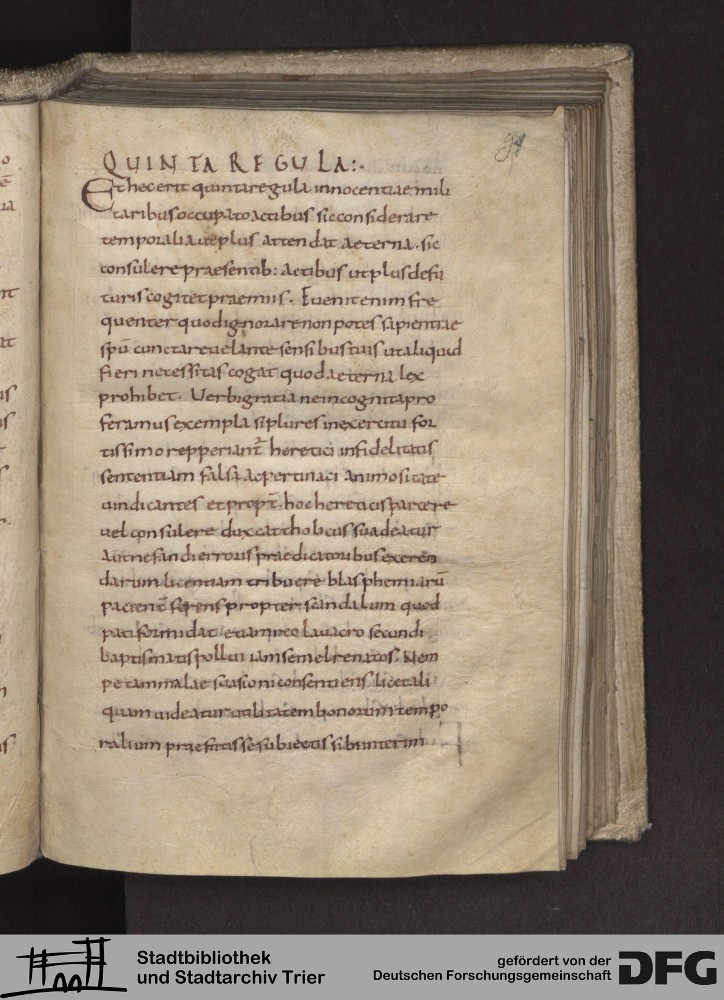 91
QUINTA REGULA:.
Et hec erit quinta regula innocentiae mili
taribus occupato actibus sic considerare
temporalia ut plus attendat aeterna. sic
consulere praesentib: actibus ut plus de fu
turis cogitet praemiis. Euenit enim fre
quenter quod ignorare non potes sapientiae
spū cuncta reuelante sensibus tuis ut aliquid
fieri necessitas cogat quod aeterna lex
prohibet. Uerbi gratia ne incognita pro
feramus exempla si plures in exercitu for
tissimo repperiant̄ heretici infidelitatis
sententiam falsa ac pertinaci animositate
uindicantes et propt̄ hoc hereticis parcere
uel consulere dux catholicus suadeatur
aut nefandi erroris praedicatoribus exeren
darum licentiam tribuere blasphemiarū
pacient̄ ferens propter scandalum quod
pati formidat etiam eo lauacro secundi
baptismatis pollui iam semel renatos. Nem
pe tam malae suasioni consentiens licet ali
quam uideatur utilitatem bonorum tempo
ralium praestitisse subiectis sibi interim
Stadtbibliothek
und Stadtarchiv Trier
gefördert von der
Deutschen Forschungsgemeinschaft
DFG